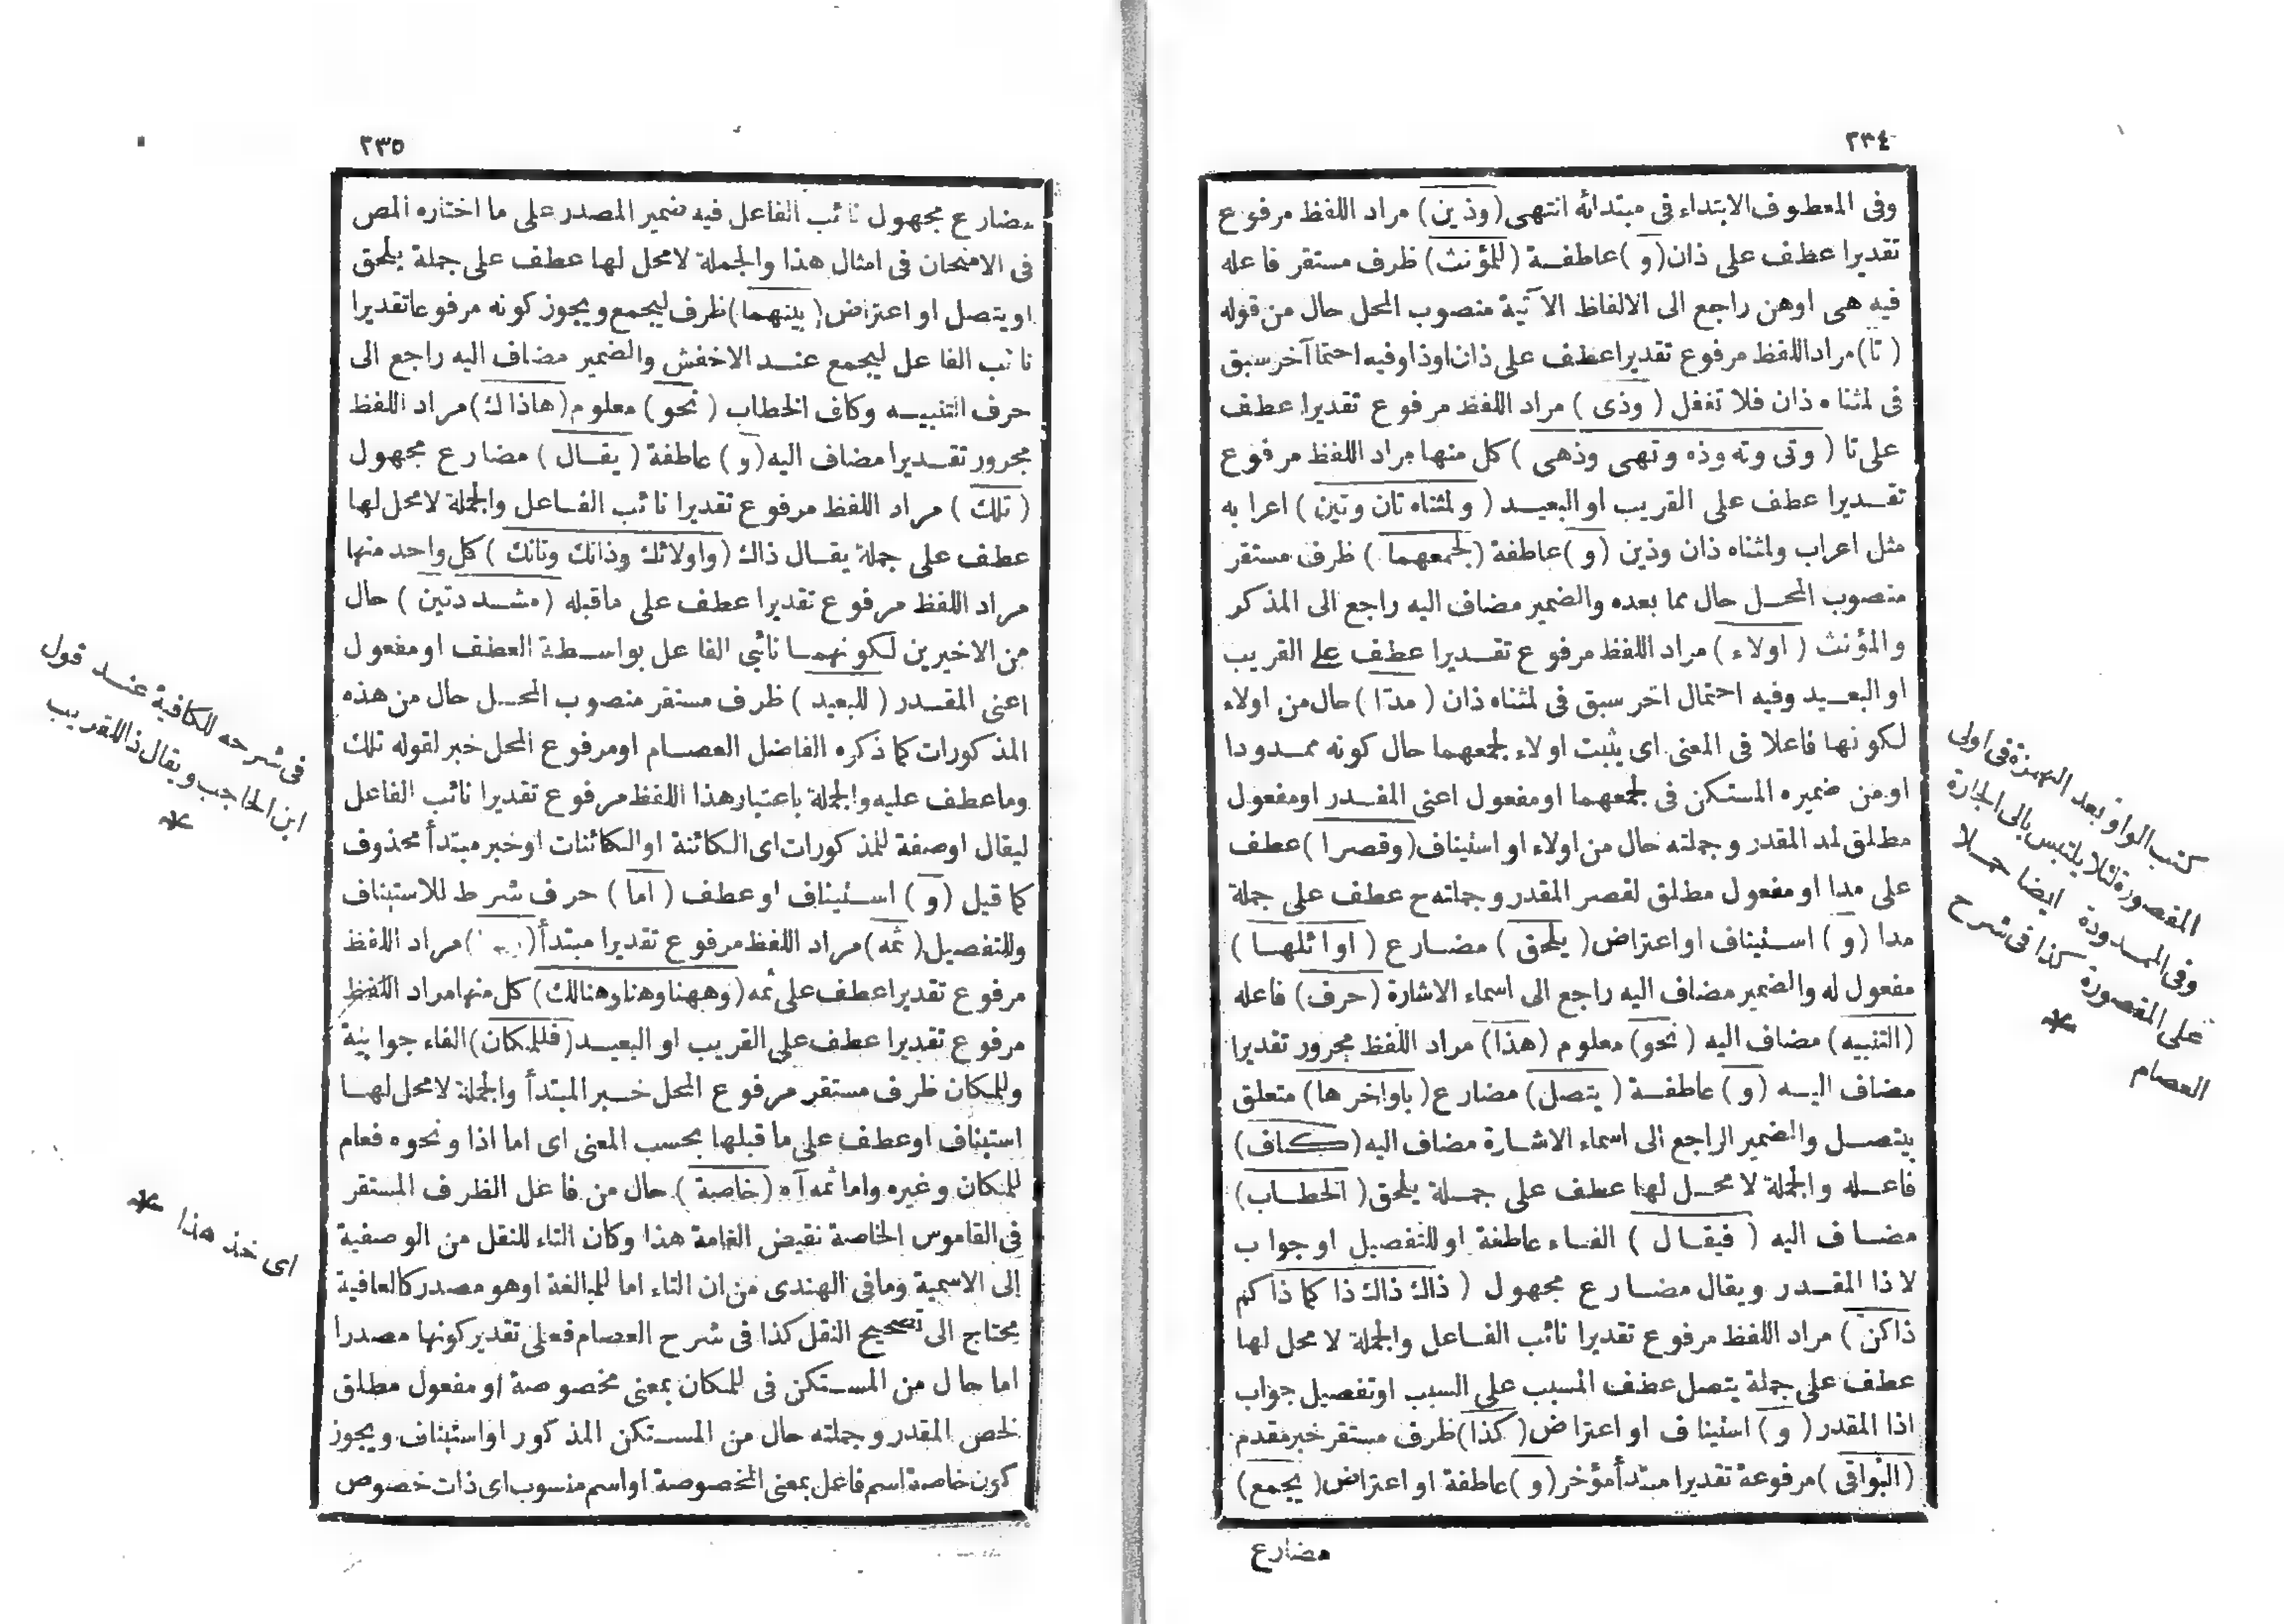 ٢٣٤
وفى المعطوف الابتداء فى مبتدائه انتهى (وذين) مراد اللفظ مرفوع
تقديرا عطف على ذان (و) عاطفة (للمؤنث) ظرف مستقر فاعله
فيه هى اوهن راجع الى الالفاظ الآتية منصوب المحل حال من قوله
(تا) مراد اللفظ مرفوع تقديرا عطف على ذان اوذا وفيه احتما آخر سبق
فى لمثناه ذان فلا تغفل (وذى) مراد اللفظ مرفوع تقديرا عطف
على تا (وتى وته وذه وتهى وذهى) كل منها مراد اللفظ مرفوع
تقديرا عطف على القريب او البعيد (ولمثناه تان وتين) اعرابه
مثل اعراب ولمثناه ذان وذين (و) عاطفة (لجمعهما) ظرف مستقر
منصوب المحل حال مما بعده والضمير مضاف اليه راجع الى المذكر
والمؤنث (اولاء) مراد اللفظ مرفوع تقديرا عطف على القريب
او البعيد وفيه احتمال اخر سبق فى لمثناه ذان (مدا) حال من اولاء
لكونها فاعلا فى المعنى اى يثبت اولاء لجمعهما حال كونه ممدودا
اومن ضميره المستكن فى لجمعهما اومفعول اعنى المقدر اومفعول
مطلق لمد المقدر وجملته حال من اولاء او استيناف (وقصرا) عطف
على مدا او مفعول مطلق لقصر المقدر وجملته ح عطف على جملة
مدا (و) استيناف او اعتراض (يلحق) مضارع (اوائلها)
مفعول له والضمير مضاف اليه راجع الى اسماء الاشارة (حرف) فاعله
(التنبيه) مضاف اليه (نحو) معلوم (هذا) مراد اللفظ مجرور تقديرا
مضاف اليه (و) عاطفة (يتصل) مضارع (باواخرها) متعلق
بيتصل والضمير الراجع الى اسماء الاشارة مضاف اليه (كاف)
فاعله والجملة لا محل لها عطف على جملة يلحق (الخطاب)
مضاف اليه (فيقال) الفاء عاطفة او للتفصيل او جواب
لاذا المقدر ويقال مضارع مجهول (ذاك ذاك ذا كما ذاكم
ذاكن) مراد اللفظ مرفوع تقديرا نائب الفاعل والجملة لا محل لها
عطف على جملة يتصل عطف المسبب على السبب اوتفصيل جواب
اذا المقدر (و) استيناف او اعتراض (كذا) ظرف مستقر خبر مقدم
(البواقى) مرفوعة تقديرا مبتدأ مؤخر (و) عاطفة او اعتراض (يجمع)
مضارع
كتب الواو بعد الهمزة فى اولى
المقصورة لئلا يلتبس بالى الجارة
وفى الممدودة ايضا حملا
على المقصورة كذا فى شرح
العصام
٢٣٥
مضارع مجهول نائب الفاعل فيه ضمير المصدر على ما اختاره المص
فى الامتحان فى امثال هذا والجملة لامحل لها عطف على جملة يلحق
اويتصل او اعتراض (بينهما) ظرف ليجمع ويجوز كونه مرفوعا تقديرا
نائب الفاعل ليجمع عند الاخفش والضمير مضاف اليه راجع الى
حرف التنبيه وكاف الخطاب (نحو) معلوم (هاذاك) مراد اللفظ
مجرور تقديرا مضاف اليه (و) عاطفة (يقال) مضارع مجهول
(تلك) مراد اللفظ مرفوع تقديرا نائب الفاعل والجملة لامحل لها
عطف على جملة يقال ذاك (واولائك وذانك وتانك) كل واحد منها
مراد اللفظ مرفوع تقديرا عطف على ماقبله (مشددتين) حال
من الاخيرين لكونهما نائبى الفاعل بواسطة العطف اومفعول
اعنى المقدر (للبعيد) ظرف مستقر منصوب المحل حال من هذه
المذكورات كما ذكره الفاضل العصام اومرفوع المحل خبر لقوله تلك
وماعطف عليه والجملة باعتبار هذا اللفظ مرفوع تقديرا نائب الفاعل
ليقال اوصفة للمذكورات اى الكائنة اوالكائنات اوخبر مبتدأ محذوف
كما قيل (و) استيناف اوعطف (اما) حرف شرط للاستيناف
وللتفصيل (ثمه) مراد اللفظ مرفوع تقديرا مبتدأ مراد اللفظ
مرفوع تقديرا عطف على ثمه (وههنا وهنا وهنالك) كل منها مراد اللفظ
مرفوع تقديرا عطف على القريب او البعيد (فللمكان) الفاء جوابية
وللمكان ظرف مستقر مرفوع المحل خبر المبتدأ والجملة لامحل لها
استيناف اوعطف على ما قبلها بحسب المعنى اى اما اذا ونحوه فعام
للمكان وغيره واما ثمه آه (خاصة) حال من فاعل الظرف المستقر
فى القاموس الخاصة نقيض العامة هذا وكان التاء للنقل من الوصفية
إلى الاسمية ومافى الهندى من ان التاء اما للمبالغة اوهو مصدر كالعافية
يحتاج الى تصحيح النقل كذا فى شرح العصام فعلى تقدير كونها مصدرا
اما حال من المستكن فى للمكان بمعنى مخصوصة اومفعول مطلق
لخص المقدر وجملته حال من المستكن المذكور اواستيناف ويجوز
كون خاصة اسم فاعل بمعنى المخصوصة اواسم منسوب اى ذات خصوص
فى شرحه للكافية عند قول
ابن الحاجب ويقال ذا للقريب
اى خذ هذا